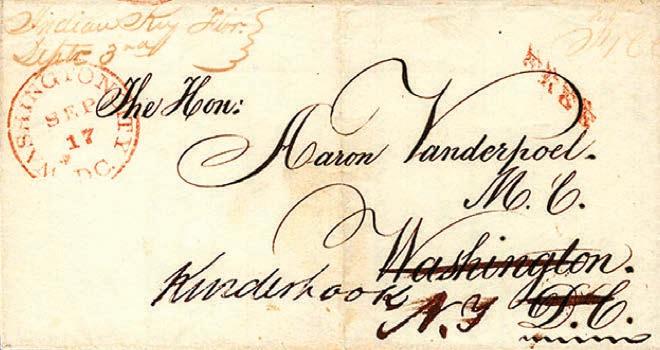 Indian Key Flor.
Sept. 3rd
WASHINGTON CITY
SEP
17
D.C.
FREE
The Hon:
Aaron Vanderpoel.
M. C.
Washington.
Kinderhook
N.Y D.C.